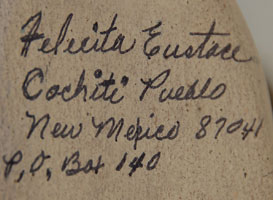 Felicita Eustace
Cochiti Pueblo
New Mexico 87041
P.O. Box 140